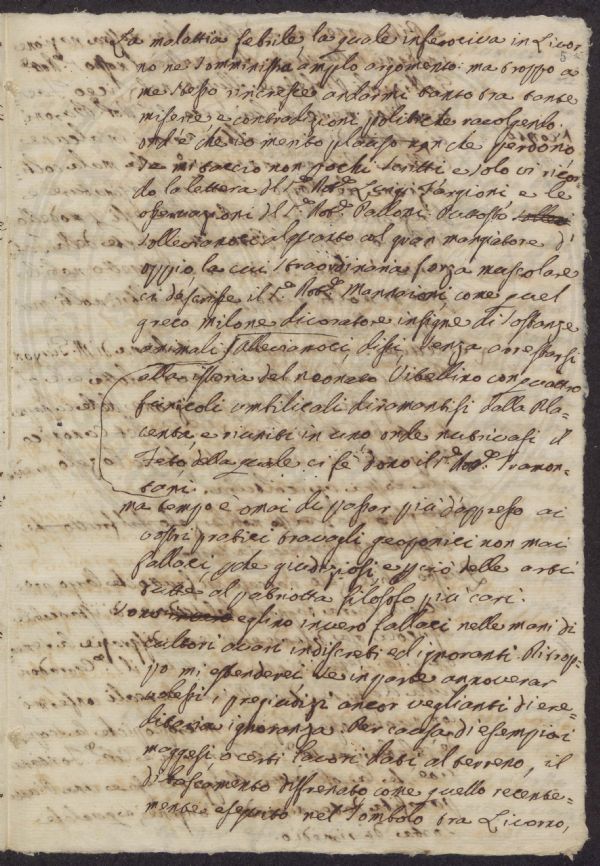 La malattia febrile, la quale inferociva in Livor=
no ne somministra amplo argomento: ma troppo a
me stesso rincresce andarmi tanto tra tante
miserie e contradizioni politiche racolgendo.
ond'è che io merito plauso non che perdono
se mi taccio non pochi scritti e solo vi ricor
do la lettera del S.r Dot.e Luigi Targioni e le
osservazioni del S.r Dot.e Palloni. Piuttosto
solleviamoci alquanto al gran mangiatore d'
oppio, la cui straordinaria forza muscolare
ci descrisse il S.r Dot.e Mannaioni come quel
greco milone divoratore insigne di sostanze
animali. solleviamoci, dissi, senza arrestarsi
alla istoria del neonato Vitellino con quattro
funicoli umbilicali diramantisi dalla Pla=
centa, e riuniti in uno onde nutrivasi il
Feto, della quale ci fè dono il S.r Dot.e Tramon=
tani.
ma tempo è omai di passar più d'appresso ai
vostri pratici travagli geoponici non mai
fallaci, che giudiziosi e perciò delle arti
tutte al patriotta filosofo più cari.
Sono eglino invero fallaci nelle mani di
cultori avari indiscreti ed ignoranti. Pur trop=
po mi estenderei se in parte annoverar
volessi i pregiudizi ancor veglianti di ere=
ditaria ignoranza. Per causa di esempio i
maggesi o certi lavori dati al terreno, il
diboscamento disfrenato come quello recente=
mente eseguito nel Tombolo tra Livorno,